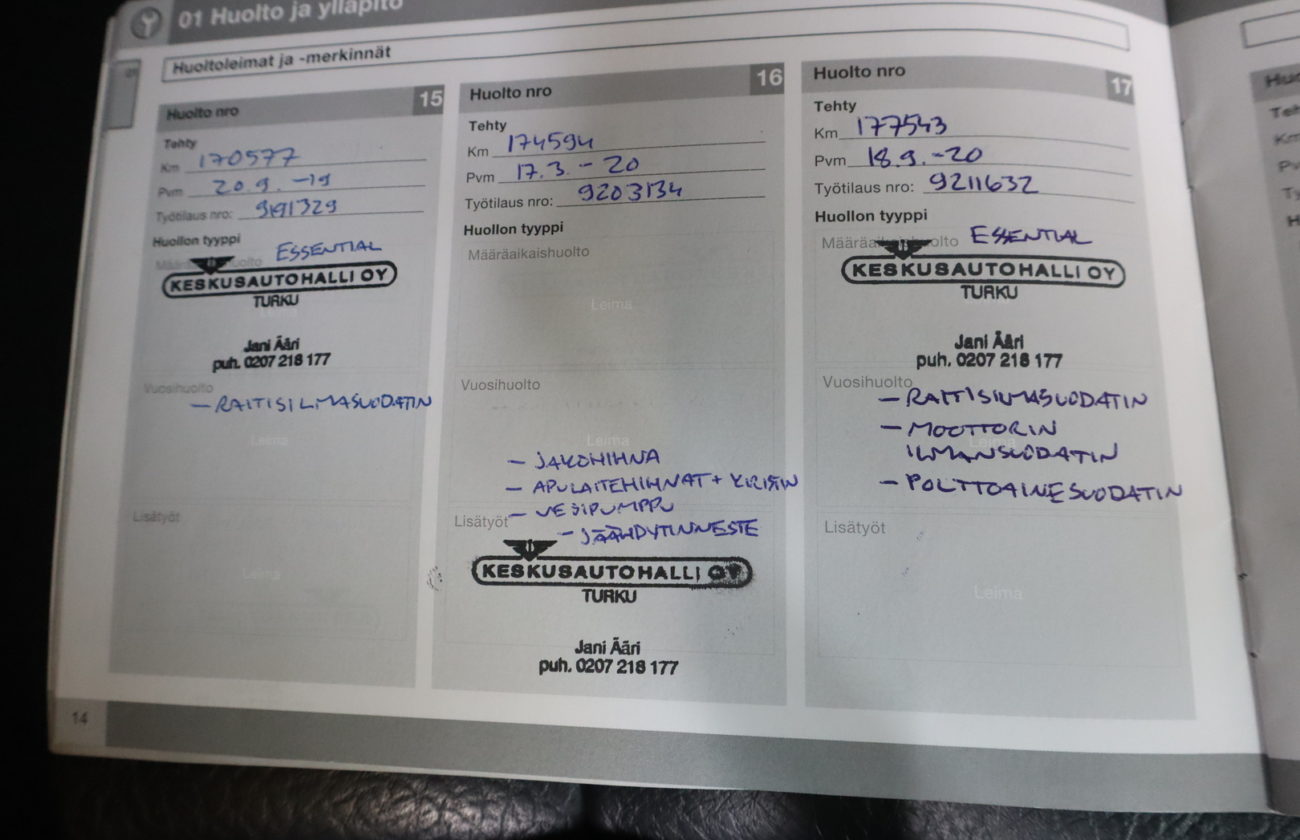 01 Huolto ja ylläpito
01
Huoltoleimat ja -merkinnät
Huolto nro 15
Tehty
Km 170577
Pvm 20.9.-19
Työtilaus nro: 9191329
Huollon tyyppi
ESSENTIAL
KESKUSAUTOHALLI OY
TURKU
Jani Ääri
puh. 0207 218 177
Vuosihuolto
- RAITISILMASUODATIN
Leima
Lisätyöt
Leima
Huolto nro 16
Tehty
Km 174594
Pvm 17.3.-20
Työtilaus nro: 9203134
Huollon tyyppi
Määräaikaishuolto
Leima
Vuosihuolto
Leima
- JAKOHIHNA
- APULAITEHIHNAT + KIRISTIN
- VESIPUMPPU
Lisätyöt
- JÄÄHDYTINNESTE
KESKUSAUTOHALLI OY
TURKU
Jani Ääri
puh. 0207 218 177
Huolto nro 17
Tehty
Km 177543
Pvm 18.9.-20
Työtilaus nro: 9211632
Huollon tyyppi
Määräaikaishuolto ESSENTIAL
KESKUSAUTOHALLI OY
TURKU
Jani Ääri
puh. 0207 218 177
Vuosihuolto
- RAITISILMASUODATIN
- MOOTTORIN
ILMANSUODATIN
Leima
- POLTTOAINESUODATIN
Lisätyöt
Leima
14